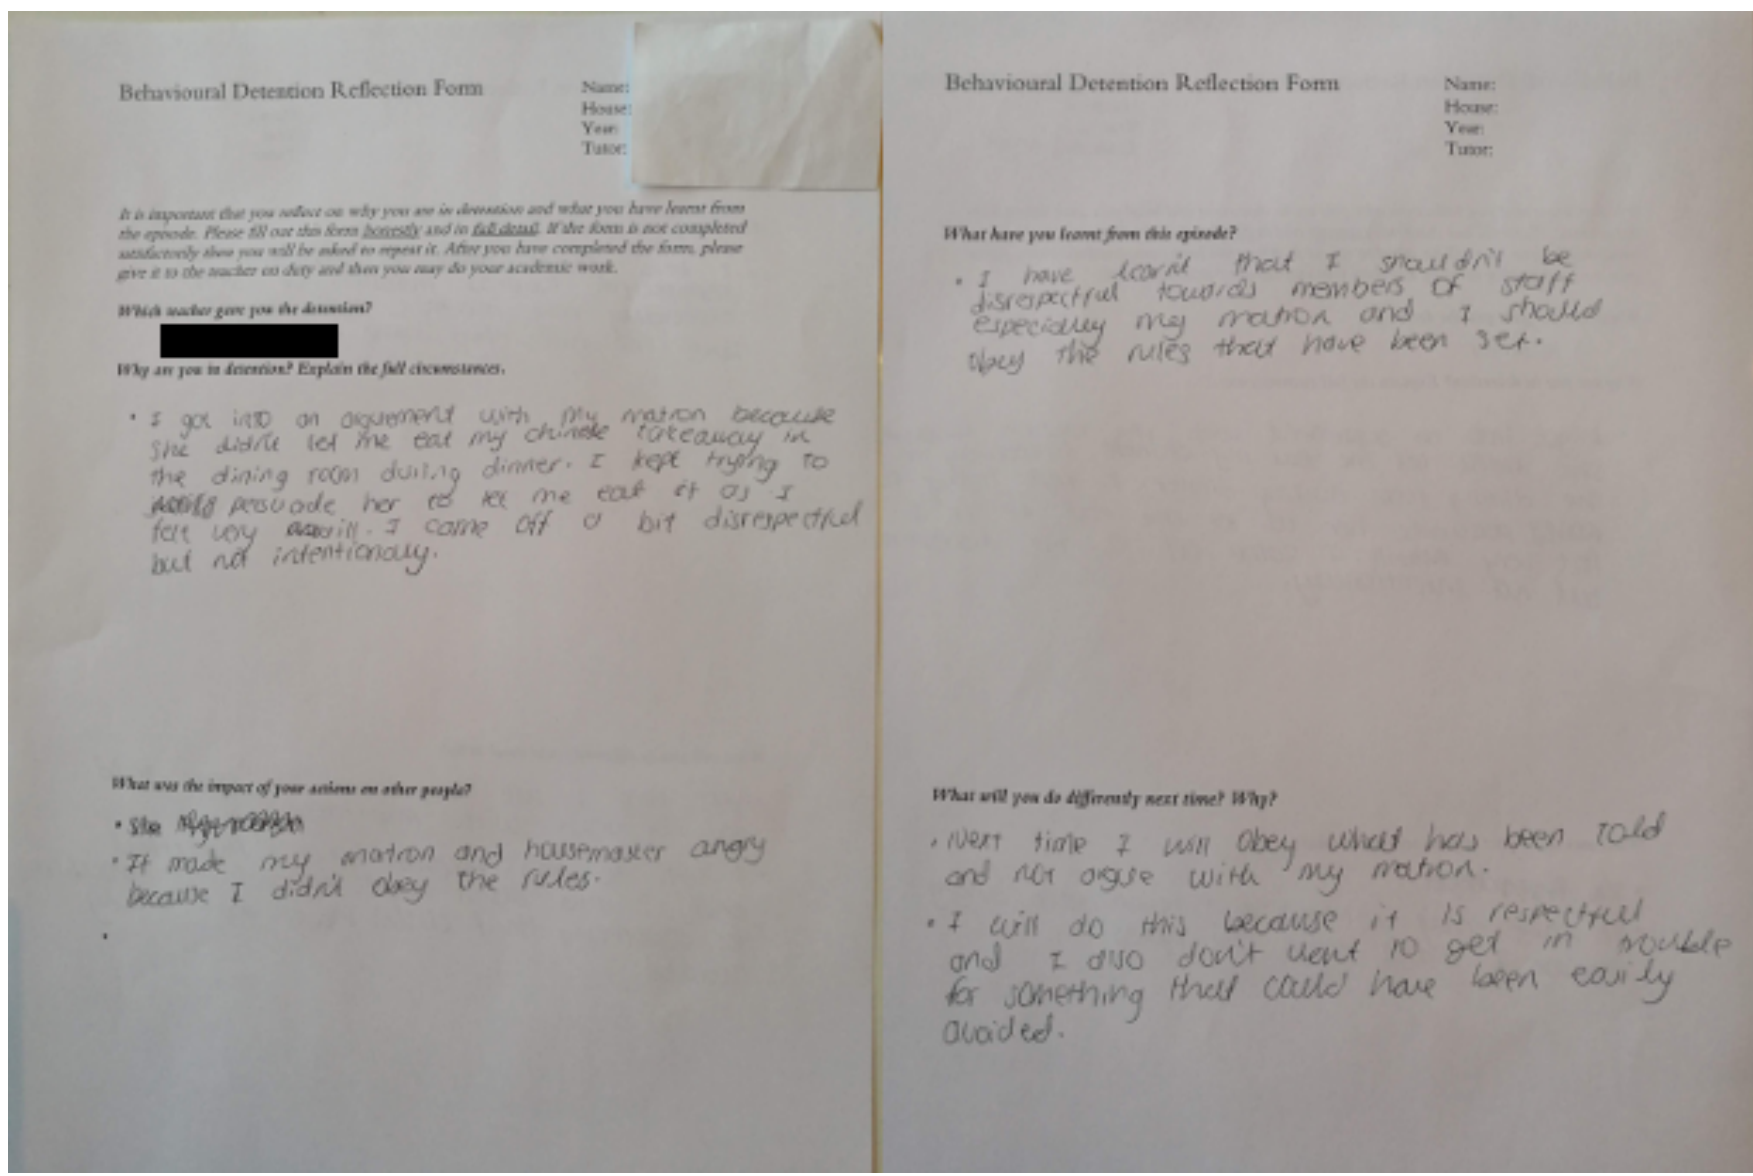 Behavioural Detention Reflection Form
Name:
House:
Year:
Tutor:
It is important that you reflect on why you are in detention and what you have learnt from
the episode. Please fill out this form honestly and in full detail. If the form is not completed
satisfactorily then you will be asked to repeat it. After you have completed the form, please
give it to the teacher on duty and then you may do your academic work.
Which teacher gave you the detention?
Why are you in detention? Explain the full circumstances.
• I got into an arguement with my matron because
She didn't let me eat my chinese takeaway in
the dining room during dinner. I kept trying to
persuade her to let me eat it as I
felt very ill. I came off a bit disrespectful
but not intentionally.
What was the impact of your actions on other people?
• She
• It made my matron and housemaster angry
because I didn't obey the rules.
•
Behavioural Detention Reflection Form
Name:
House:
Year:
Tutor:
What have you learnt from this episode?
• I have learnt that I shouldn't be
disrespectful towards members of staff
especially my matron and I should
obey the rules that have been set.
What will you do differently next time? Why?
• Next time I will obey what has been told
and not argue with my matron.
• I will do this because it is respectful
and I also don't want to get in trouble
for something that could have been easily
avoided.